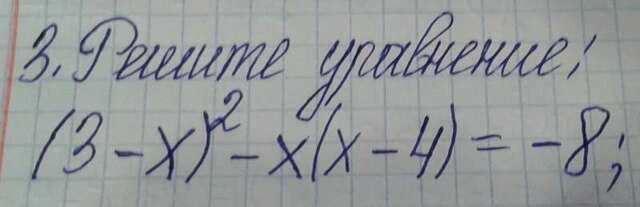 3. Решите уравнение;
(3-x)² - x(x-4) = -8;